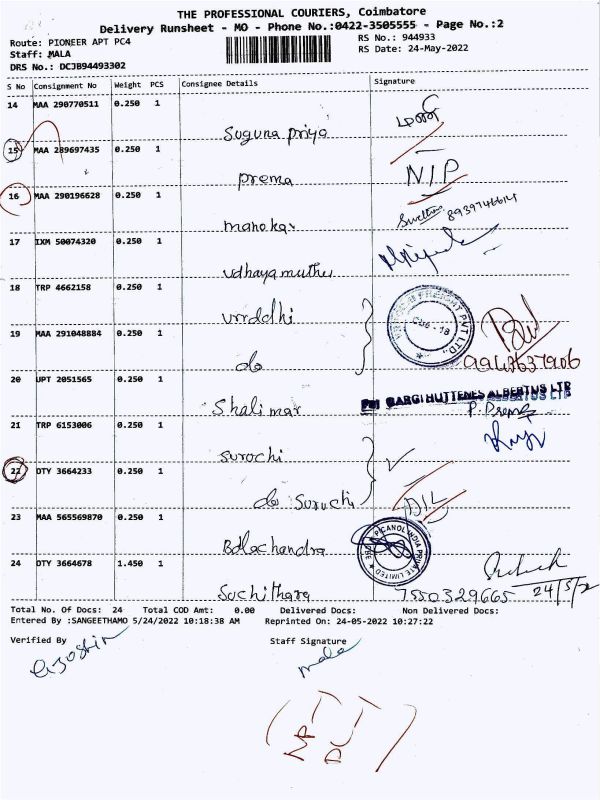 THE PROFESSIONAL COURIERS, Coimbatore
Delivery Runsheet - MO - Phone No.:0422-3505555 - Page No.:2
Route: PIONEER APT PC4
RS No.: 944933
Staff: MALA
RS Date: 24-May-2022
DRS No.: DCJB94493302
S No Consignment No Weight PCS Consignee Details Signature
14 MAA 290770511 0.250 1
Suguna priya
15 MAA 289697435 0.250 1
prema NIP
16 MAA 290196628 0.250 1
manokar 8939746614
17 IXM 50074320 0.250 1
udhayamuthu
18 TRP 4662158 0.250 1
vriddhi
19 MAA 291048884 0.250 1
do 9947637906
20 UPT 2051565 0.250 1
Shalimar
GARGI HUTTENES ALBERTUS LTP
21 TRP 6153006 0.250 1
surochi
22 DTY 3664233 0.250 1
do Suruchi DIL
23 MAA 565569870 0.250 1
Balachandra
PICANOL INDIA PRIVATE LIMITED
24 DTY 3664678 1.450 1
Suchithara 7550329665 24/5/2
Total No. Of Docs: 24 Total COD Amt: 0.00 Delivered Docs: Non Delivered Docs:
Entered By :SANGEETHAMO 5/24/2022 10:18:38 AM Reprinted On: 24-05-2022 10:27:22
Verified By Staff Signature
mala